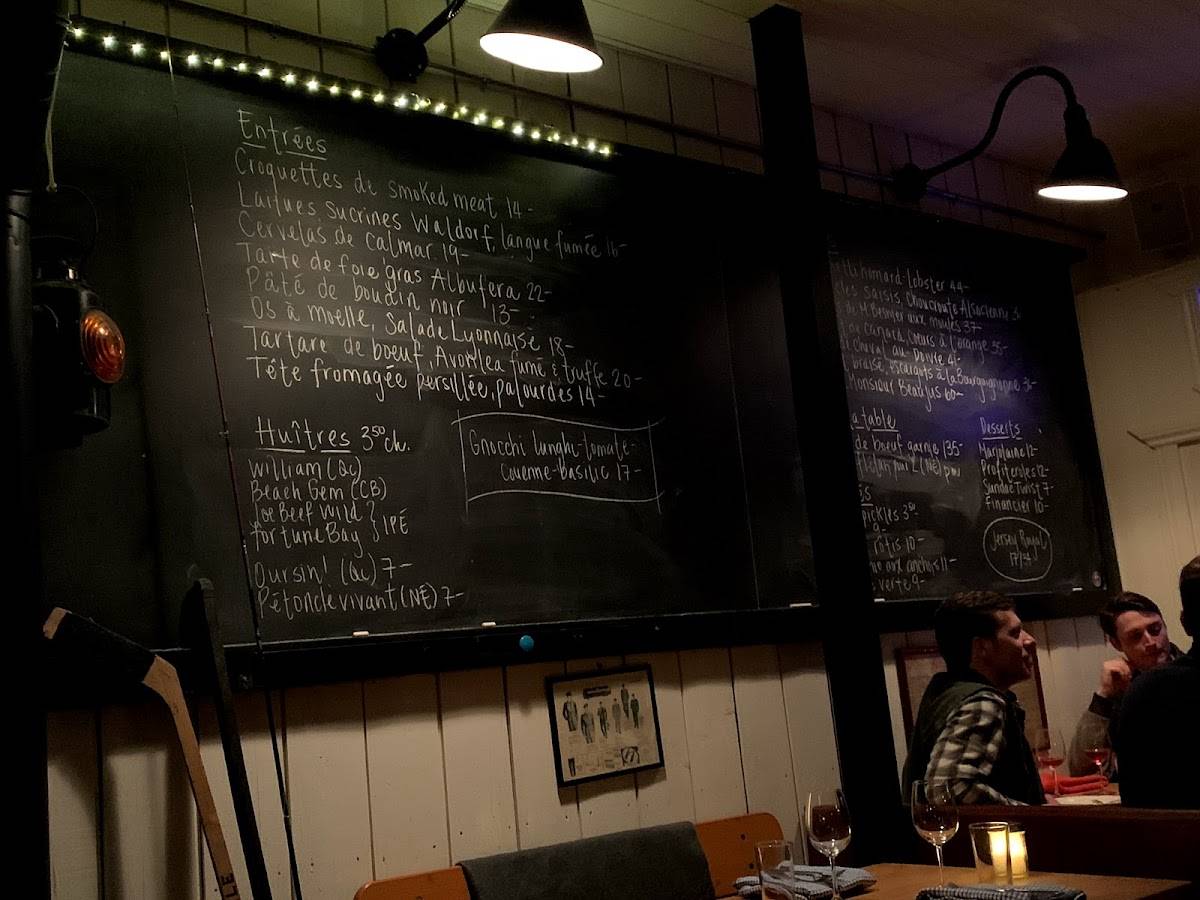 Entrées
Croquettes de smoked meat 14-
Laitues Sucrines Waldorf, langue fumée 16-
Cervelas de calmar 19-
Tarte de foie gras Albufera 22-
Pâté de boudin noir 13-
Os à moelle, Salade Lyonnaise 18-
Tartare de boeuf, Avonlea fumé & truffe 20-
Tête fromagée persillée, palourdes 14-
Huîtres 3.50 ch.
William (Qc)
Beach Gem (CB)
Joe Beef Wild
Fortune Bay } IPÉ
Oursin! (Qc) 7-
Pétoncle vivant (NÉ) 7-
Gnocchi lunghi-tomate-
Couenne-Basilic 17-
homard-Lobster 44-
Saisis Choucroute Alsacienne
de M. Besnier aux moules 37-
canard, Coeurs à l'orange 35-
cheval au Poivre
braisé, escargots à la Bourguignonne
Monsieur Beaujus 60-
a table
de boeuf garnie 135-
pickles 3.50
rôtis 10-
aux anchois 11-
verte 9-
Desserts
Marjolaine 12-
Profiteroles 12-
Sundae Twist 7-
Financier 10-
Jersey Royal